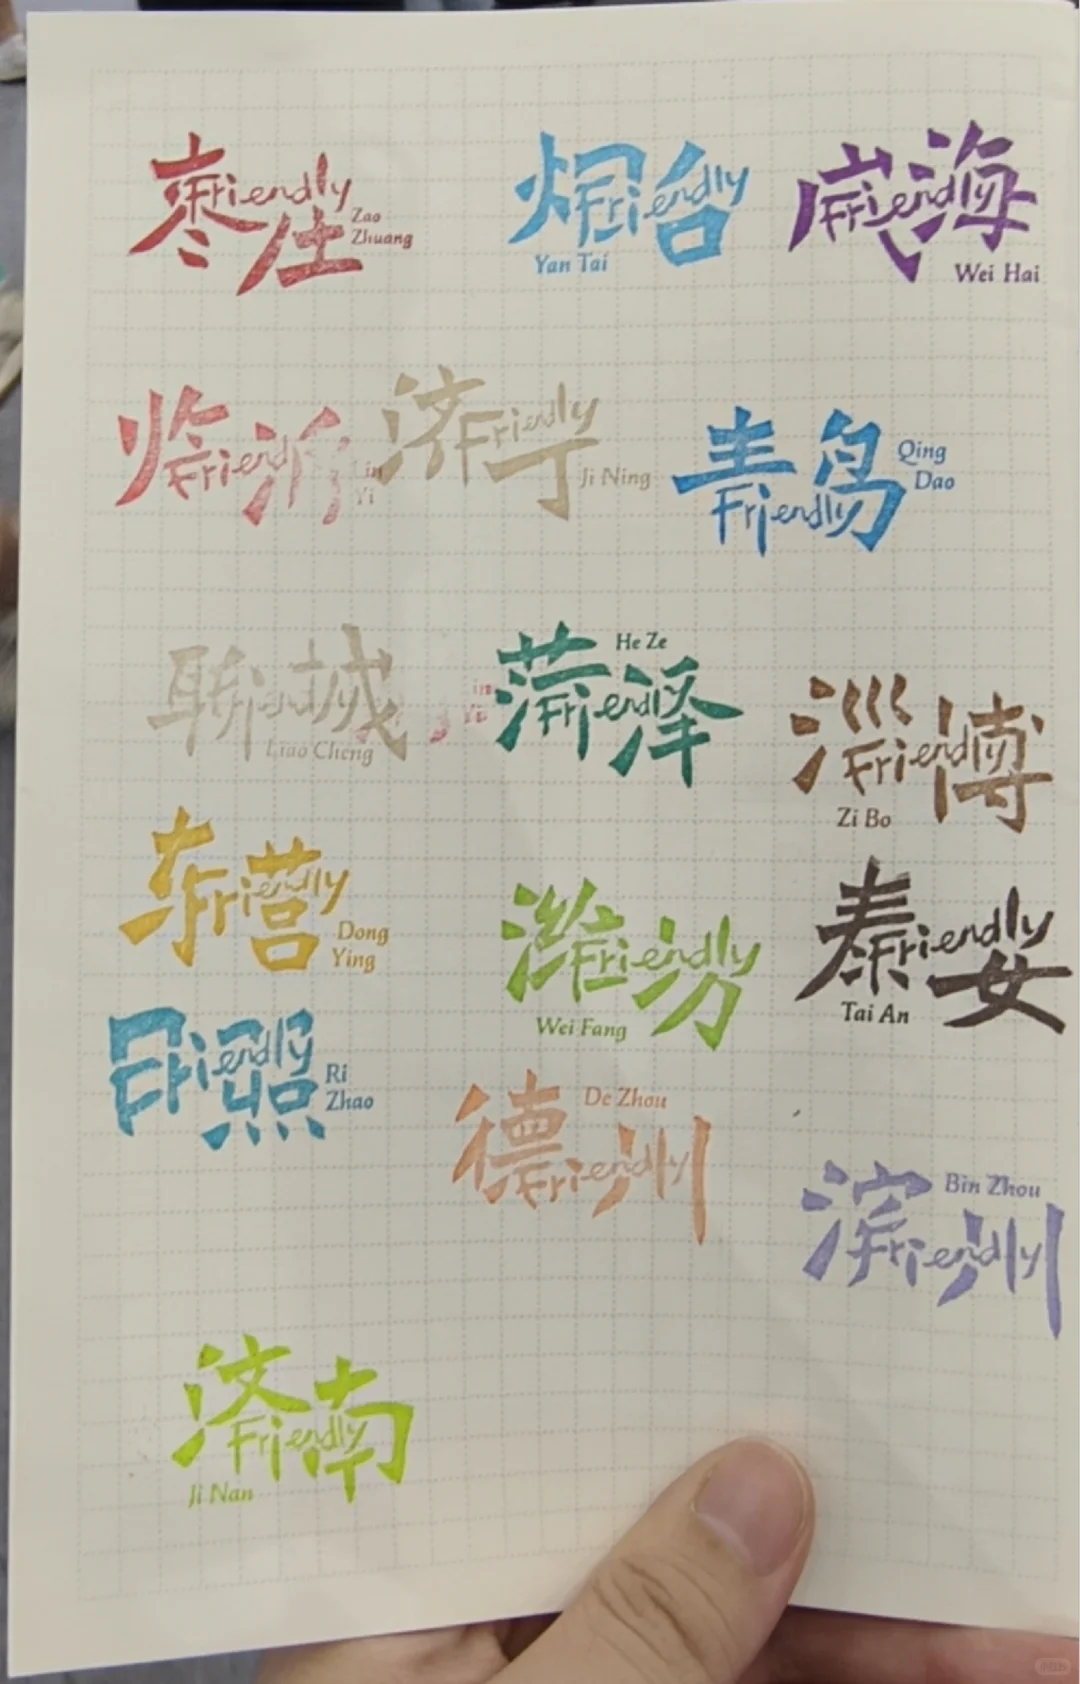 枣庄
Friendly
Zao
Zhuang
烟台
Friendly
Yan Tai
威海
Friendly
Wei Hai
临沂
Friendly
Lin
Yi
济宁
Friendly
Ji Ning
青岛
Friendly
Qing
Dao
聊城
Friendly
Liao Cheng
菏泽
Friendly
He Ze
淄博
Friendly
Zi Bo
东营
Friendly
Dong
Ying
潍坊
Friendly
Wei Fang
泰安
Friendly
Tai An
日照
Friendly
Ri
Zhao
德州
Friendly
De Zhou
滨州
Friendly
Bin Zhou
济南
Friendly
Ji Nan